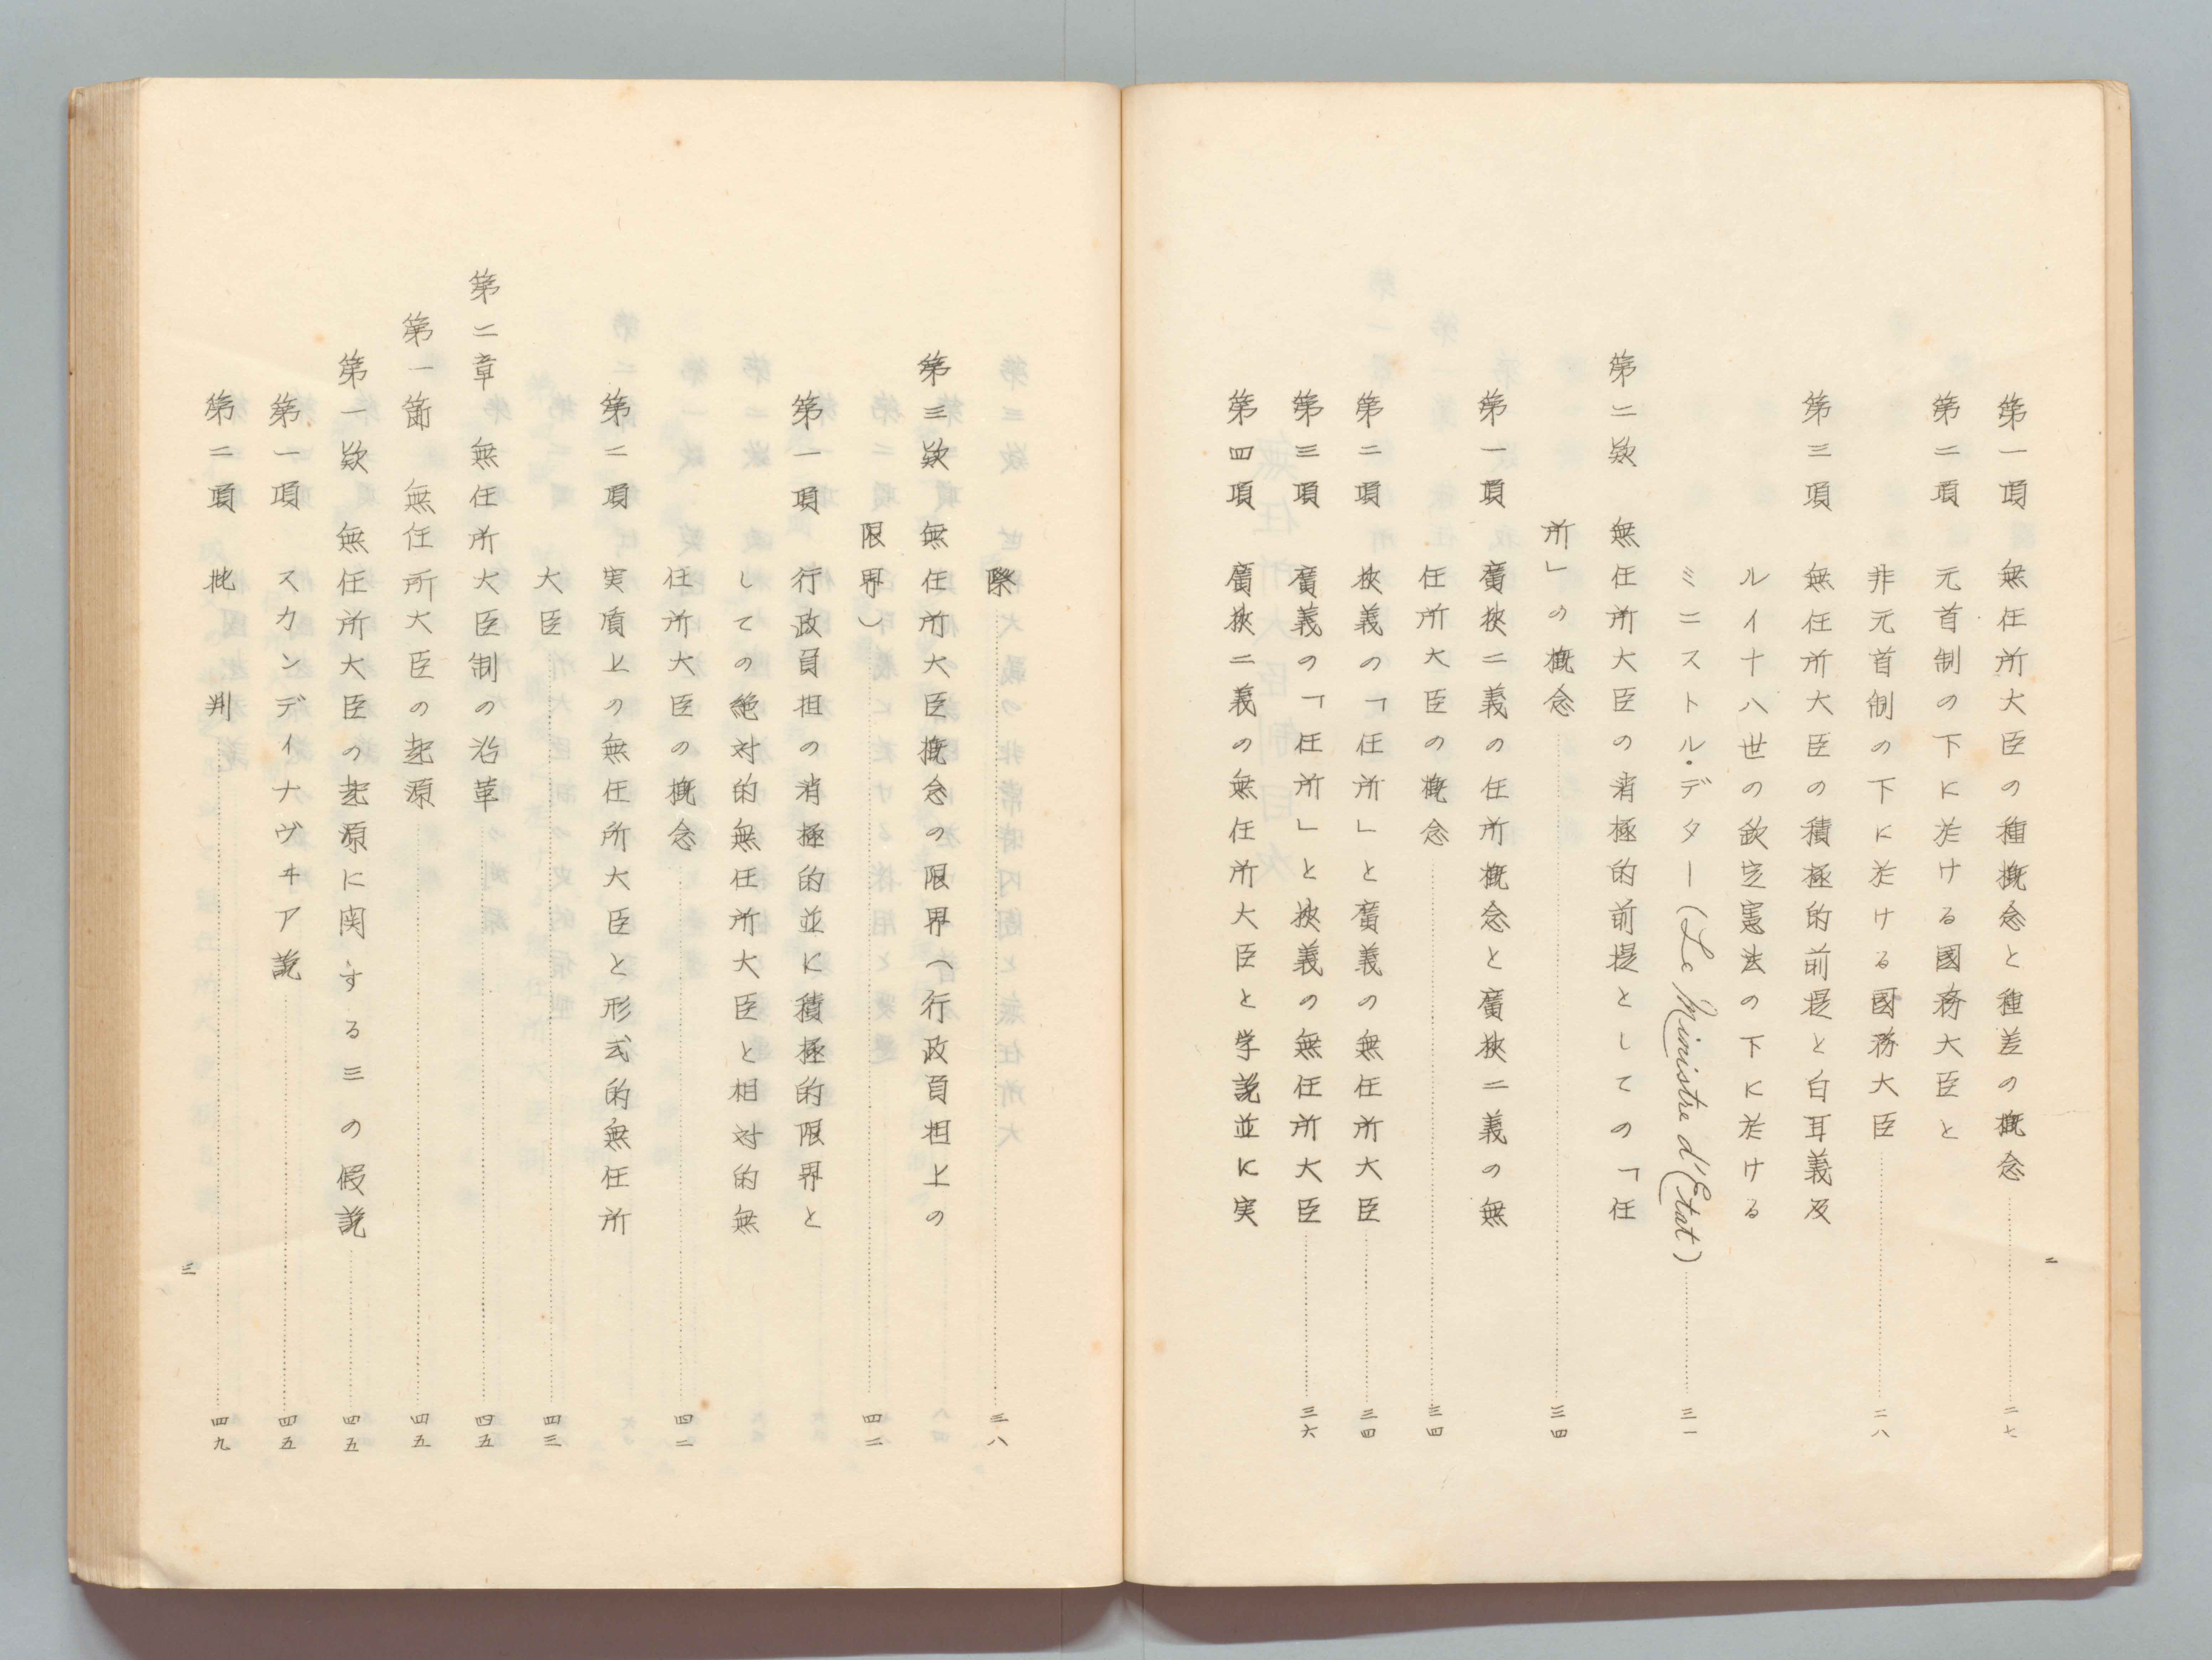 第一項　無任所大臣の種概念と種差の概念……二七
第二項　元首制の下に於ける國務大臣と
非元首制の下に於ける國務大臣……二八
第三項　無任所大臣の積極的前提と白耳義及
ルイ十八世の欽定憲法の下に於ける
ミニストル・デター（Le Ministre d'Etat）……三一
第二欵　無任所大臣の消極的前提としての「任
所」の概念……三四
第一項　廣狹二義の任所概念と廣狹二義の無
任所大臣の概念……三四
第二項　狹義の「任所」と廣義の無任所大臣……三四
第三項　廣義の「任所」と狹義の無任所大臣……三六
第四項　廣狹二義の無任所大臣と学説並に実
二
際……三八
第三欵　無任所大臣概念の限界（行政負担上の
限界）……四二
第一項　行政負担の消極的並に積極的限界と
しての絶対的無任所大臣と相対的無
任所大臣の概念……四二
第二項　実質上の無任所大臣と形式的無任所
大臣……四三
第二章　無任所大臣制の沿革……四五
第一節　無任所大臣の起源……四五
第一欵　無任所大臣の起源に関する三の假説……四五
第一項　スカンデイナヴヰア説……四五
第二項　批　判……四九
三